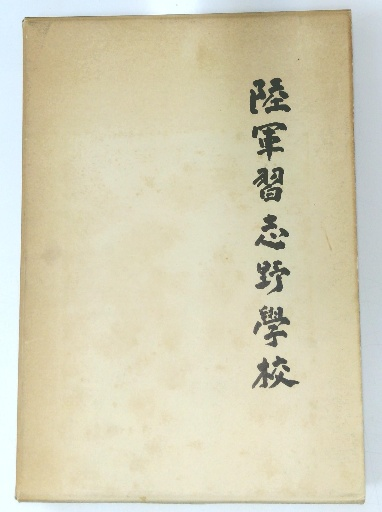 陸軍習志野學校